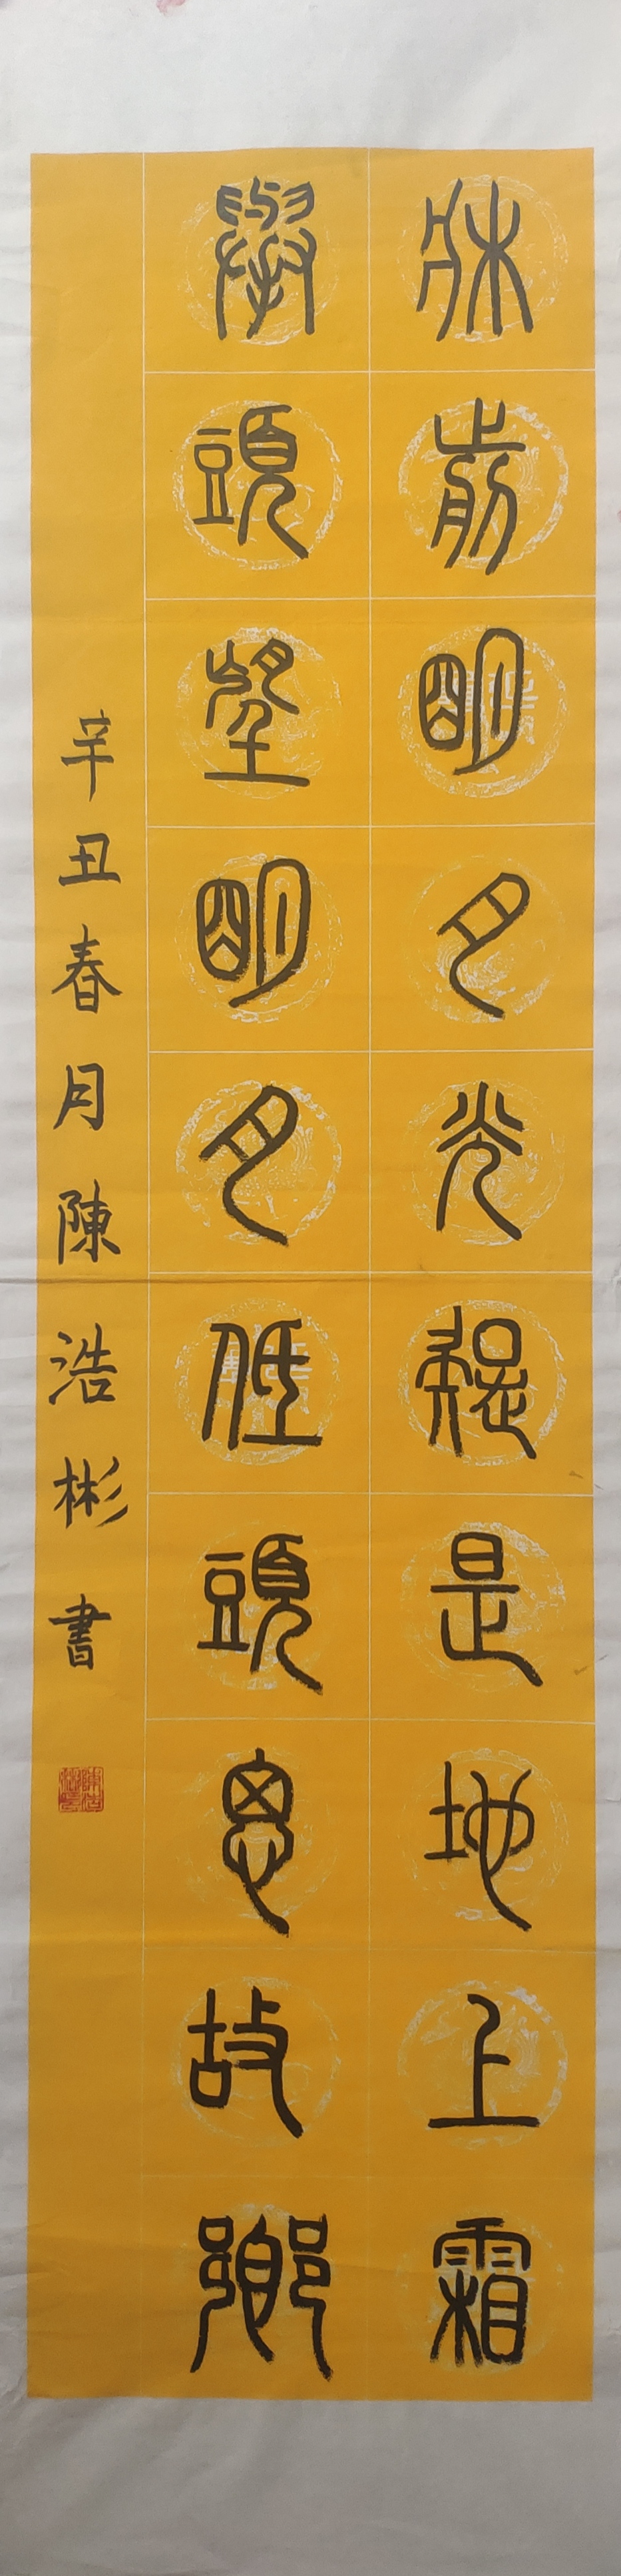 牀前明月光疑是地上霜
舉頭望明月低頭思故鄉
辛丑春月陳浩彬書